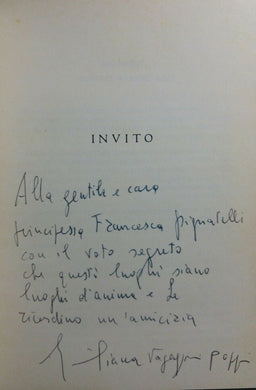 INVITO
Alla gentile e cara
principessa Francesca Pignatelli
con il voto segreto
che questi luoghi siano
luoghi d'anima e Le
ricordino un'amicizia